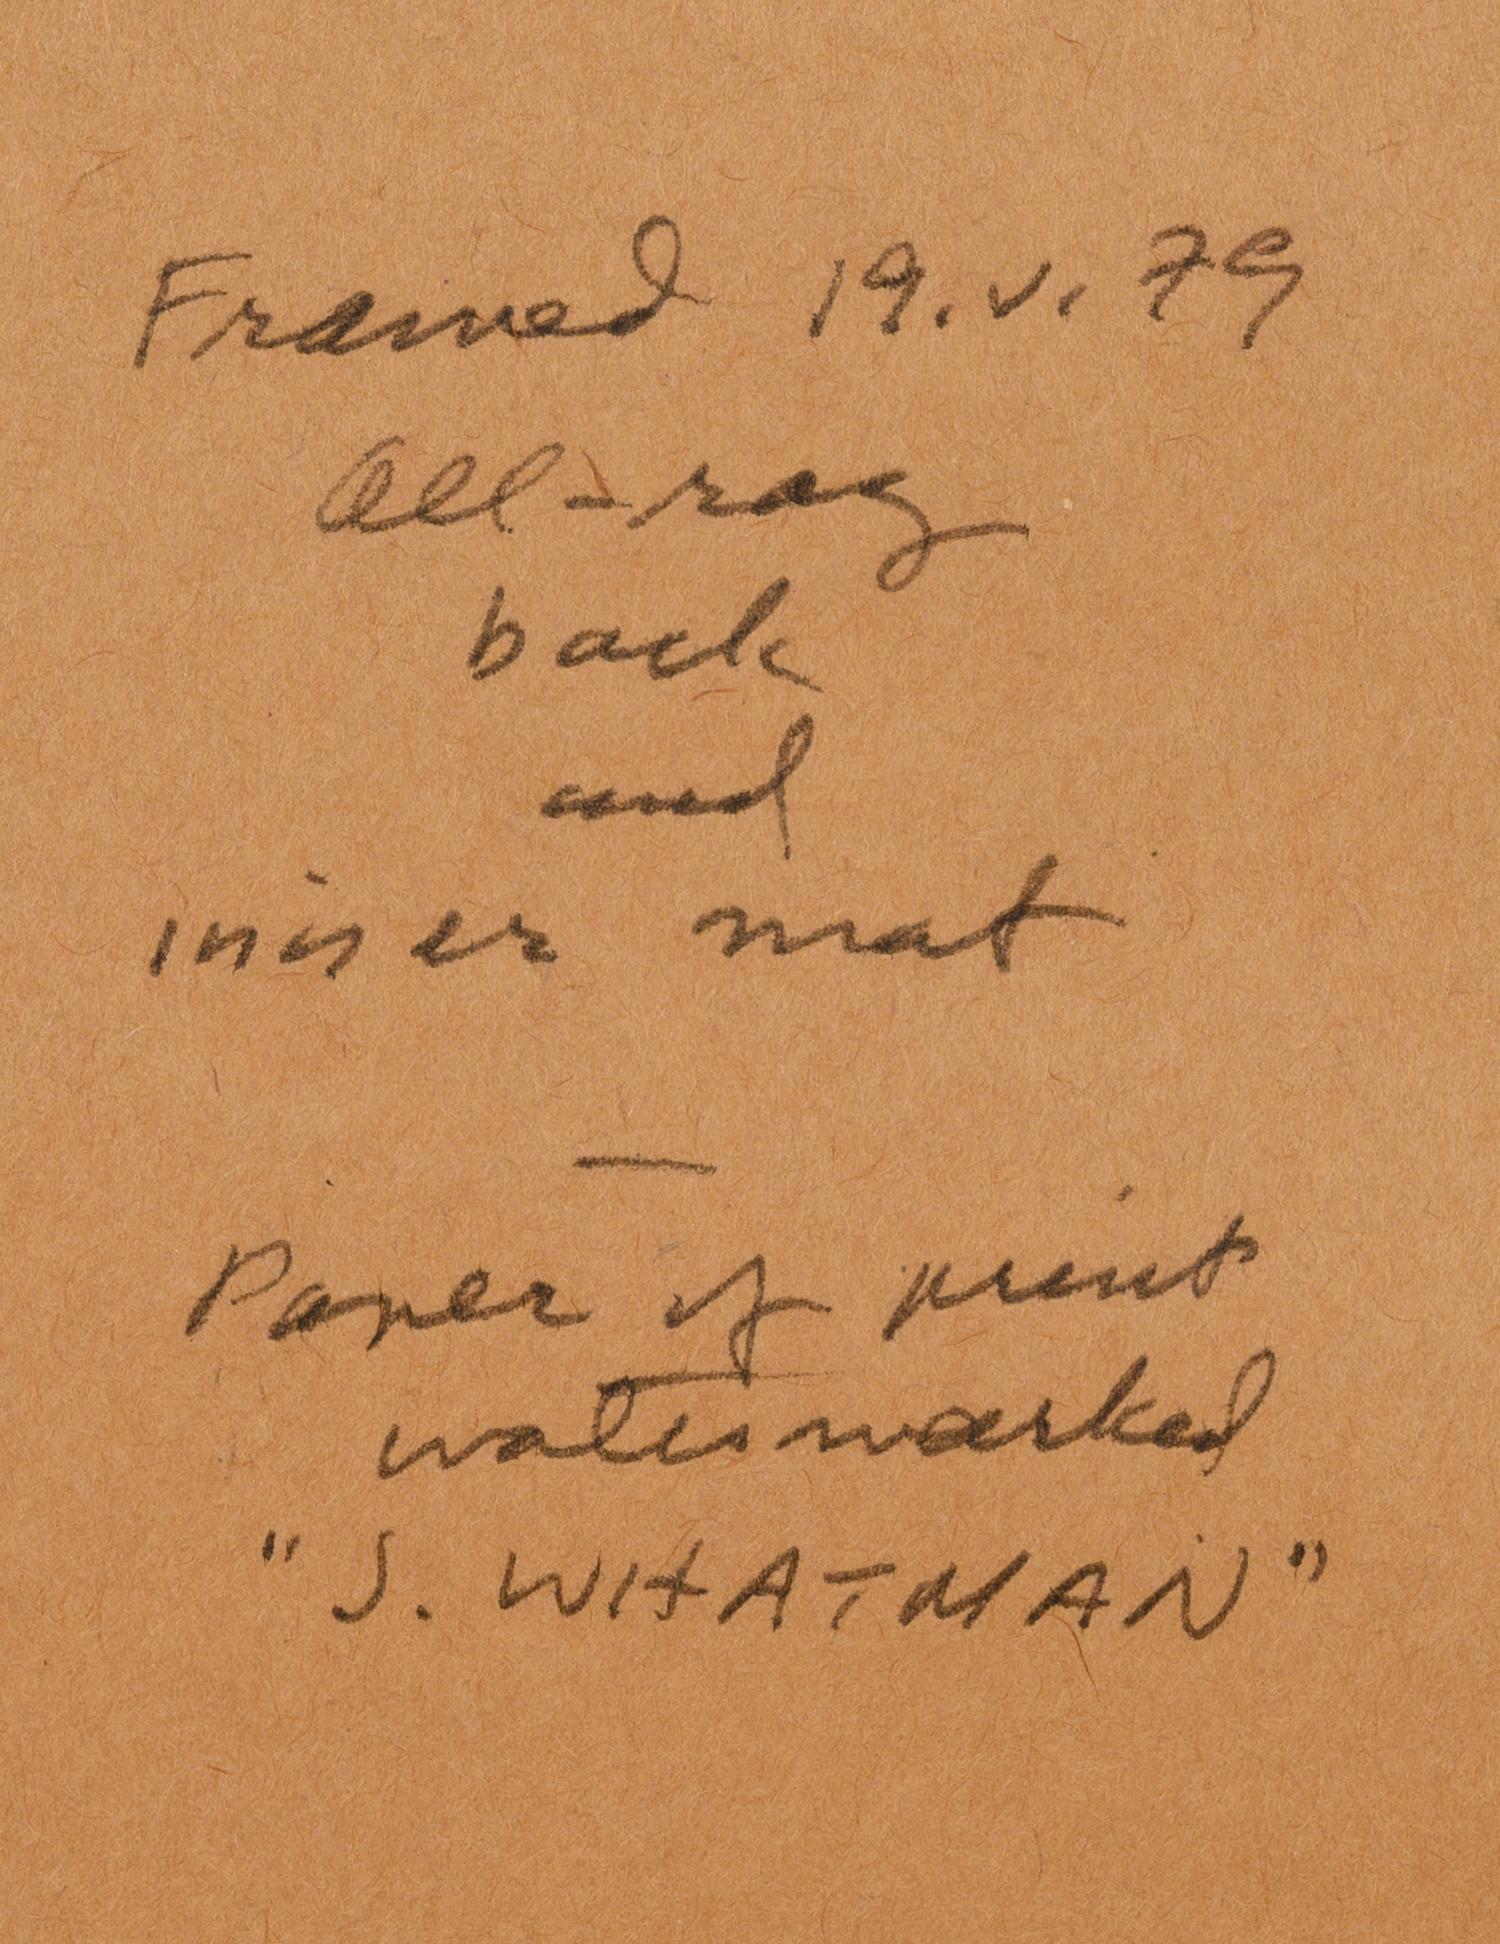 Framed 19.v.79
All-rag
back
and
inner mat
—
Paper of print
watermarked
"J. WHATMAN"